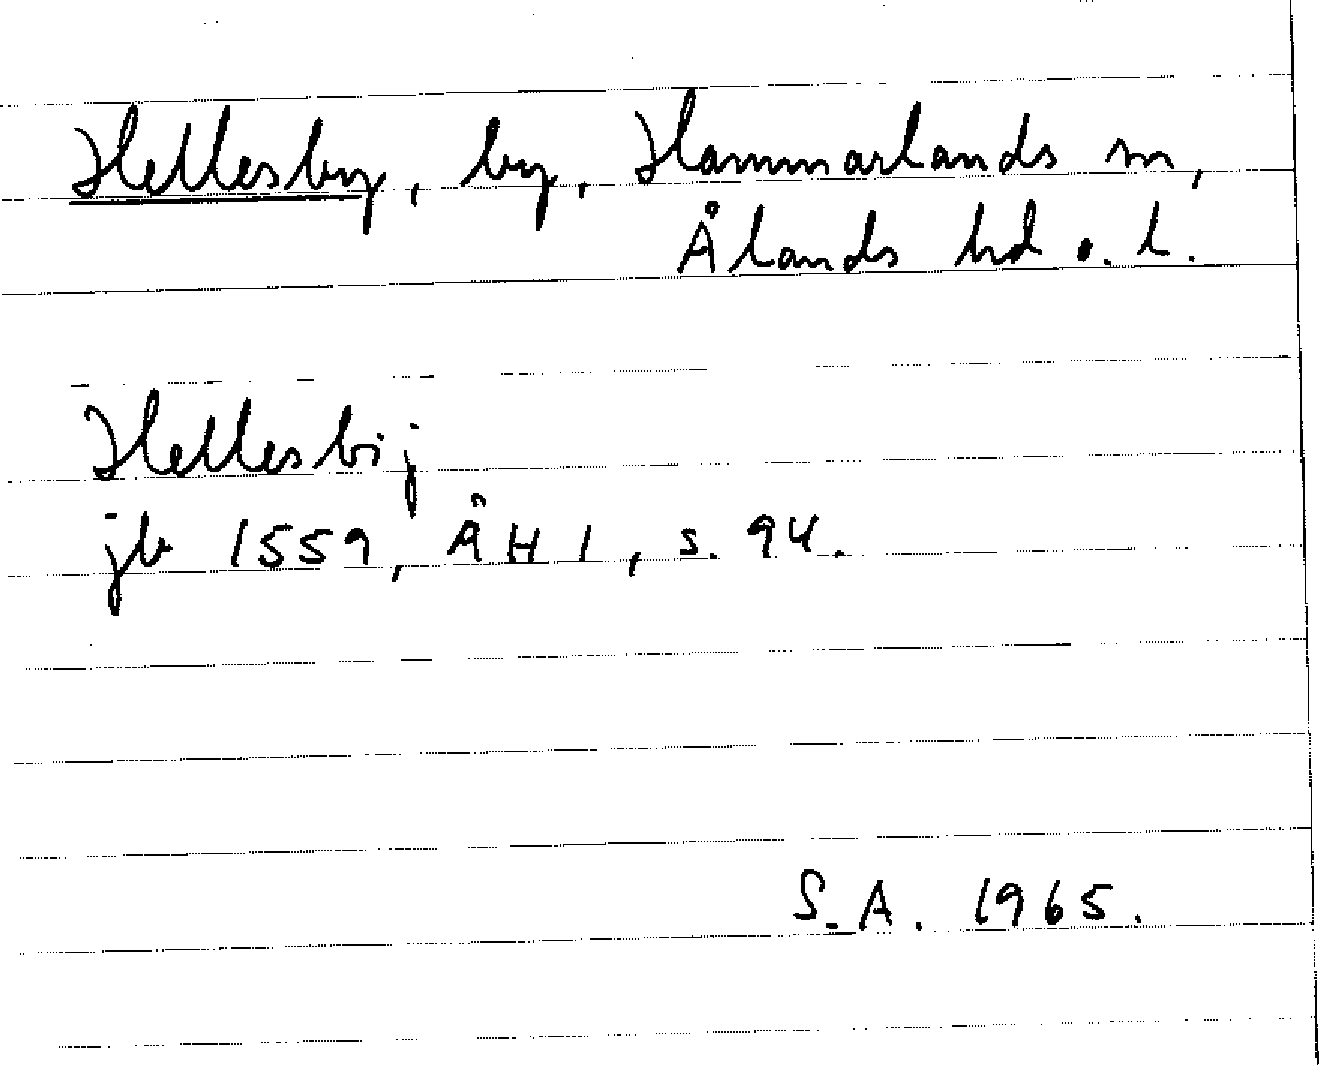 Hellesby, by, Hammarlands sn,
Ålands hd o. l.
Hellesbij
jb 1559, ÅH I, s. 94.
S.A. 1965.